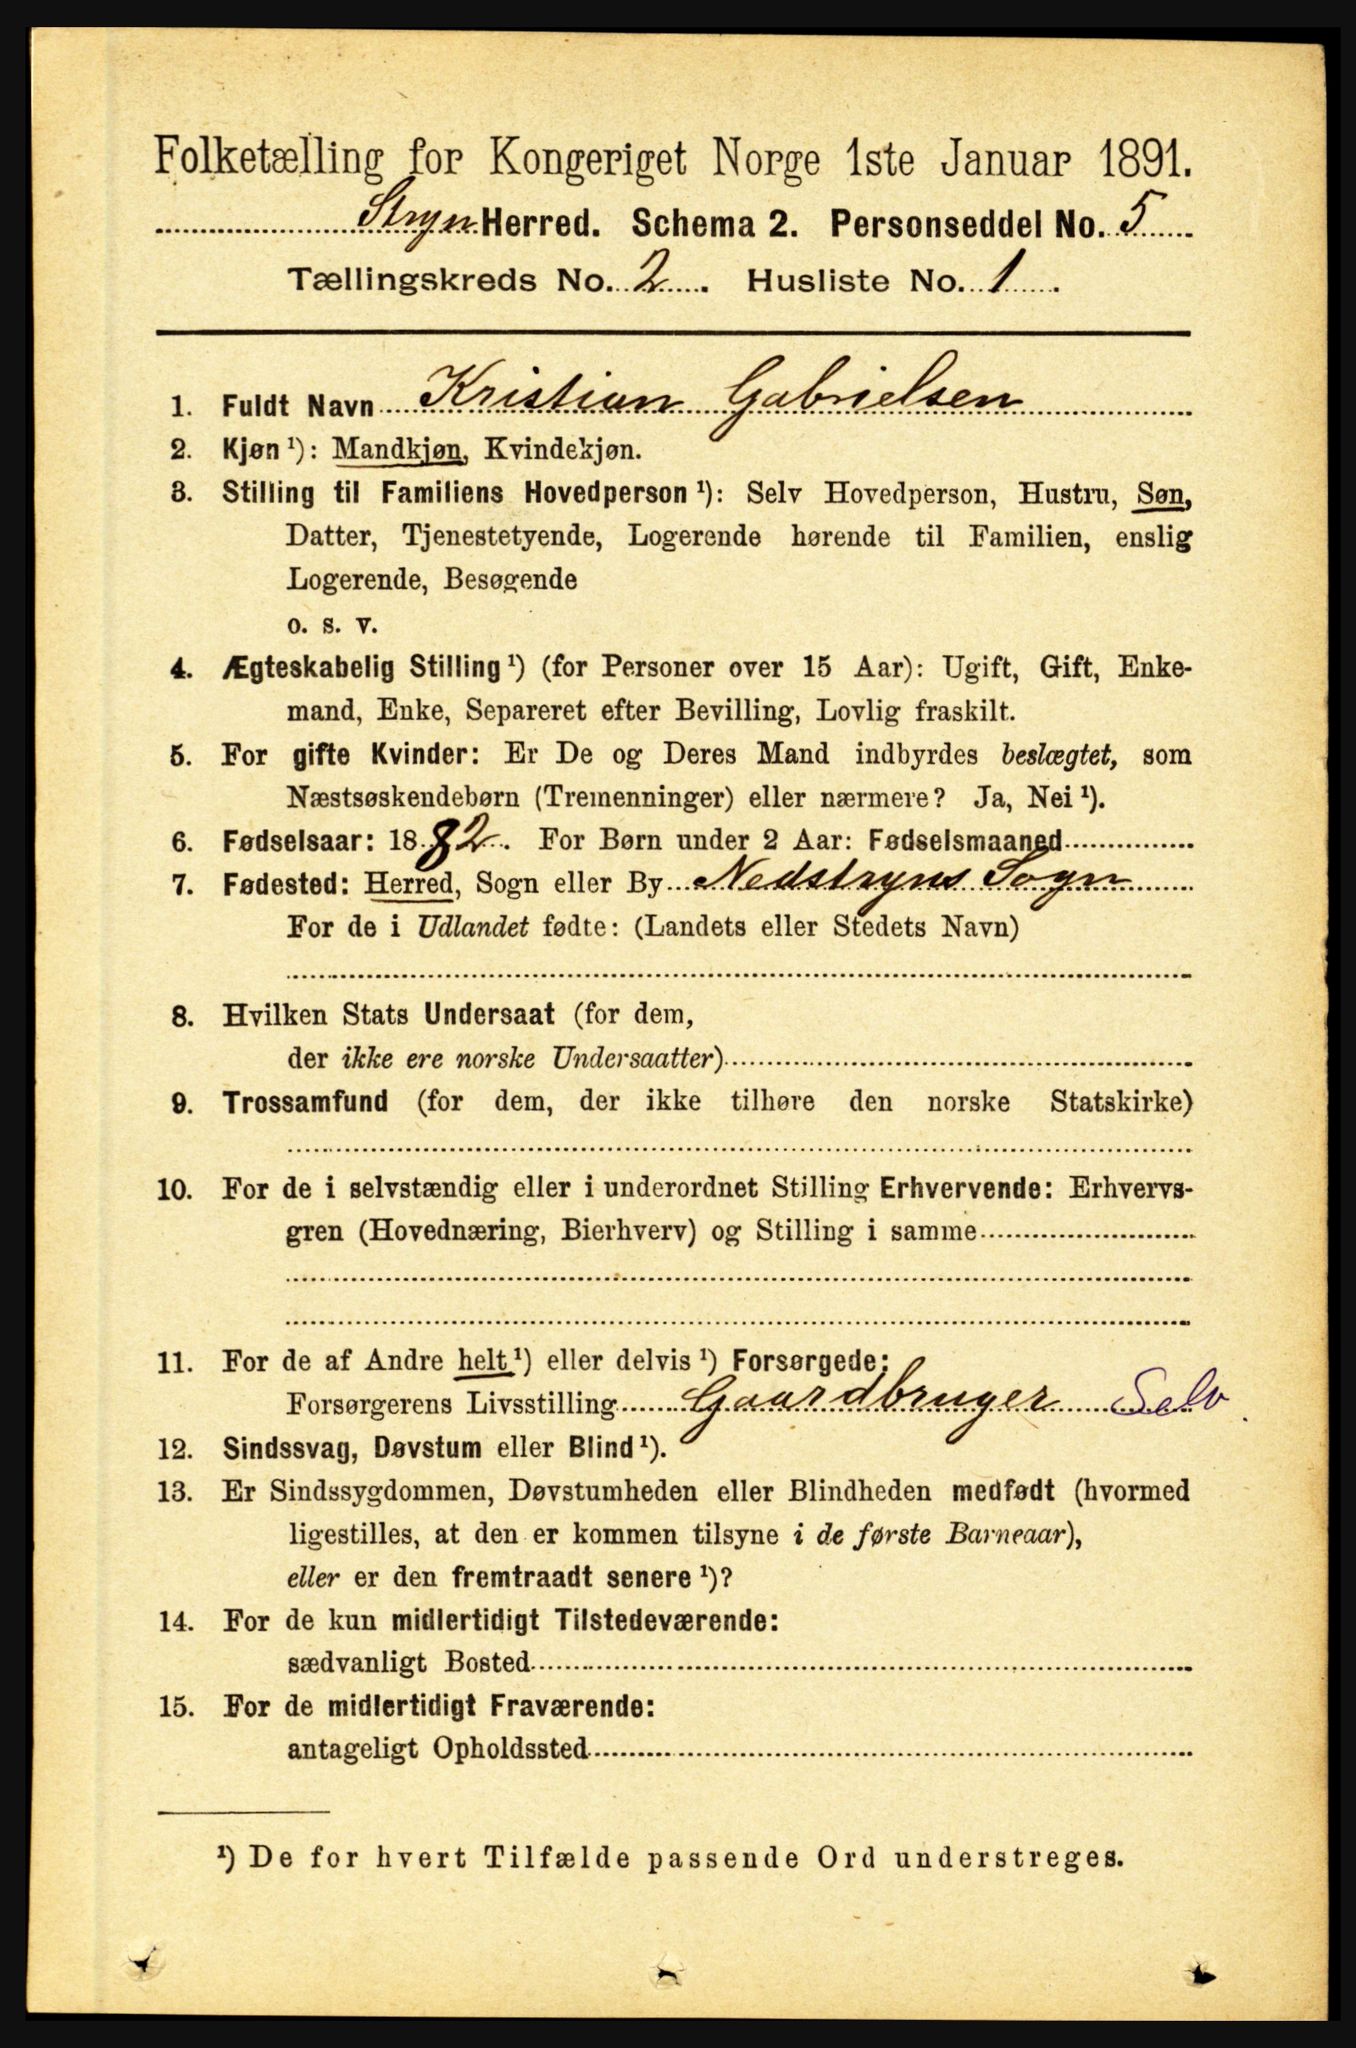 Folketælling for Kongeriget Norge 1ste Januar 1891.
Stryn Herred. Schema 2. Personseddel No. 5
Tællingskreds No. 2. Husliste No. 1.
1. Fuldt Navn Kristian Gabrielsen
2. Kjøn ¹): Mandkjøn, Kvindekjøn.
3. Stilling til Familiens Hovedperson ¹): Selv Hovedperson, Hustru, Søn,
Datter, Tjenestetyende, Logerende hørende til Familien, enslig
Logerende, Besøgende
o. s. v.
4. Ægteskabelig Stilling ¹) (for Personer over 15 Aar): Ugift, Gift, Enke-
mand, Enke, Separeret efter Bevilling, Lovlig fraskilt.
5. For gifte Kvinder: Er De og Deres Mand indbyrdes beslægtet, som
Næstsøskendebørn (Tremenninger) eller nærmere? Ja, Nei ¹).
6. Fødselsaar: 1882. For Børn under 2 Aar: Fødselsmaaned
7. Fødested: Herred, Sogn eller By Nedstryns Sogn
For de i Udlandet fødte: (Landets eller Stedets Navn)
8. Hvilken Stats Undersaat (for dem,
der ikke ere norske Undersaatter)
9. Trossamfund (for dem, der ikke tilhøre den norske Statskirke)
10. For de i selvstændig eller i underordnet Stilling Erhvervende: Erhvervs-
gren (Hovednæring, Bierhverv) og Stilling i samme
11. For de af Andre helt ¹) eller delvis ¹) Forsørgede:
Forsørgerens Livsstilling Gaardbruger Selv
12. Sindssvag, Døvstum eller Blind ¹).
13. Er Sindssygdommen, Døvstumheden eller Blindheden medfødt (hvormed
ligestilles, at den er kommen tilsyne i de første Barneaar),
eller er den fremtraadt senere ¹)?
14. For de kun midlertidigt Tilstedeværende:
sædvanligt Bosted
15. For de midlertidigt Fraværende:
antageligt Opholdssted
¹) De for hvert Tilfælde passende Ord understreges.